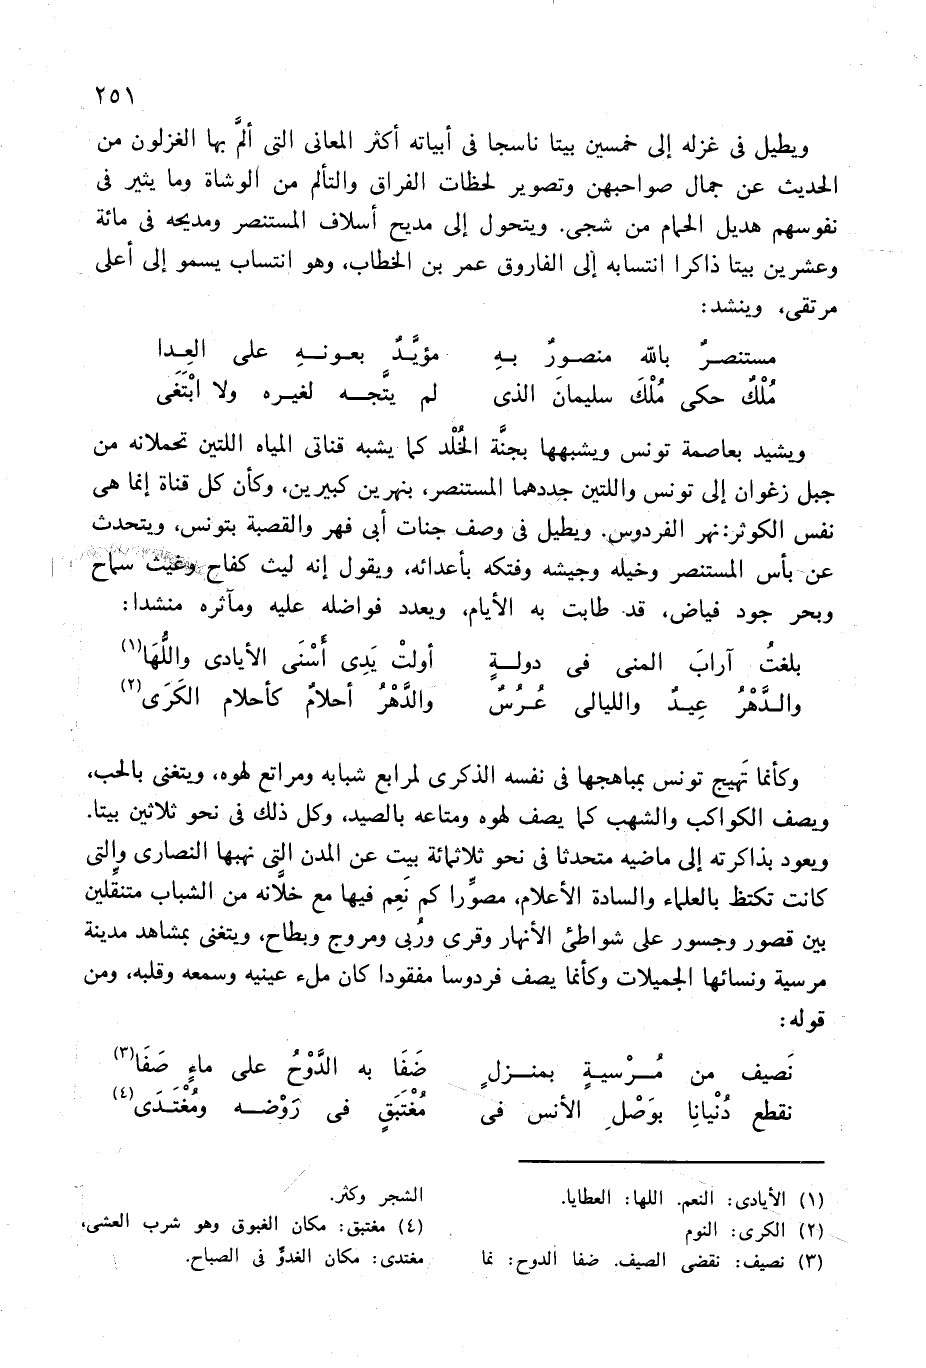 ٢٥١
ويطيل فى غزله إلى خمسين بيتا ناسجا فى أبياته أكثر المعانى التى ألمَّ بها الغزلون من
الحديث عن جمال صواحبهن وتصوير لحظات الفراق والتألم من الوشاة وما يثير فى
نفوسهم هديل الحمام من شجى. ويتحول إلى مديح أسلاف المستنصر ومديحه فى مائة
وعشرين بيتا ذاكرا انتسابه إلى الفاروق عمر بن الخطاب، وهو انتساب يسمو إلى أعلى
مرتقى، وينشد:
مستنصرٌ بالله منصورٌ بهِ مؤيَّدٌ بعونهِ على العِدا
مُلْكٌ حكى مُلْكَ سليمانَ الذى لم يتَّجه لغيره ولا ابْتَغَى
ويشيد بعاصمة تونس ويشبهها بجنَّة الخُلْد كما يشبه قناتى المياه اللتين تحملانه من
جبل زغوان إلى تونس واللتين جددهما المستنصر، بنهرين كبيرين، وكأن كل قناة إنما هى
نفس الكوثر: نهر الفردوس. ويطيل فى وصف جنات أبى فهر والقصبة بتونس، ويتحدث
عن بأس المستنصر وخيله وجيشه وفتكه بأعدائه، ويقول إنه ليث كفاح وغيث سماح
وبحر جود فياض، قد طابت به الأيام، ويعدد فواضله عليه ومآثره منشدا:
بلغتُ آرابَ المنى فى دولةٍ أولتْ يَدِى أَسْنَى الأيادى واللُّهَا(١)
والدَّهْرُ عِيدٌ والليالى عُرُسٌ والدَّهْرُ أحلامٌ كأحلام الكَرَى(٢)
وكأنما تَهيج تونس بمباهجها فى نفسه الذكرى لمرابع شبابه ومراتع لهوه، ويتغنى بالحب،
ويصف الكواكب والشهب كما يصف لهوه ومتاعه بالصيد، وكل ذلك فى نحو ثلاثين بيتا.
ويعود بذاكرته إلى ماضيه متحدثا فى نحو ثلاثمائة بيت عن المدن التى نهبها النصارى والتى
كانت تكتظ بالعلماء والسادة الأعلام، مصوِّرا كم نَعِم فيها مع خلَّانه من الشباب متنقلين
بين قصور وجسور على شواطئ الأنهار وقرى ورُبى ومروج وبطاح، ويتغنى بمشاهد مدينة
مرسية ونسائها الجميلات وكأنما يصف فردوسا مفقودا كان ملء عينيه وسمعه وقلبه، ومن
قوله:
نَصيف من مُرْسيةٍ بمنزلٍ ضَفَا به الدَّوْحُ على ماءٍ صَفَا(٣)
نقطع دُنْيانا بوَصْلِ الأنس فى مُغْتبَقٍ فى رَوْضه ومُغْتَدَى(٤)
(١) الأيادى: النعم. اللها: العطايا.
(٢) الكرى: النوم
(٣) نصيف: نقضى الصيف. ضفا الدوح: نما
الشجر وكثر.
(٤) مغتبق: مكان الغبوق وهو شرب العشى،
مغتدى: مكان الغدوِّ فى الصباح.